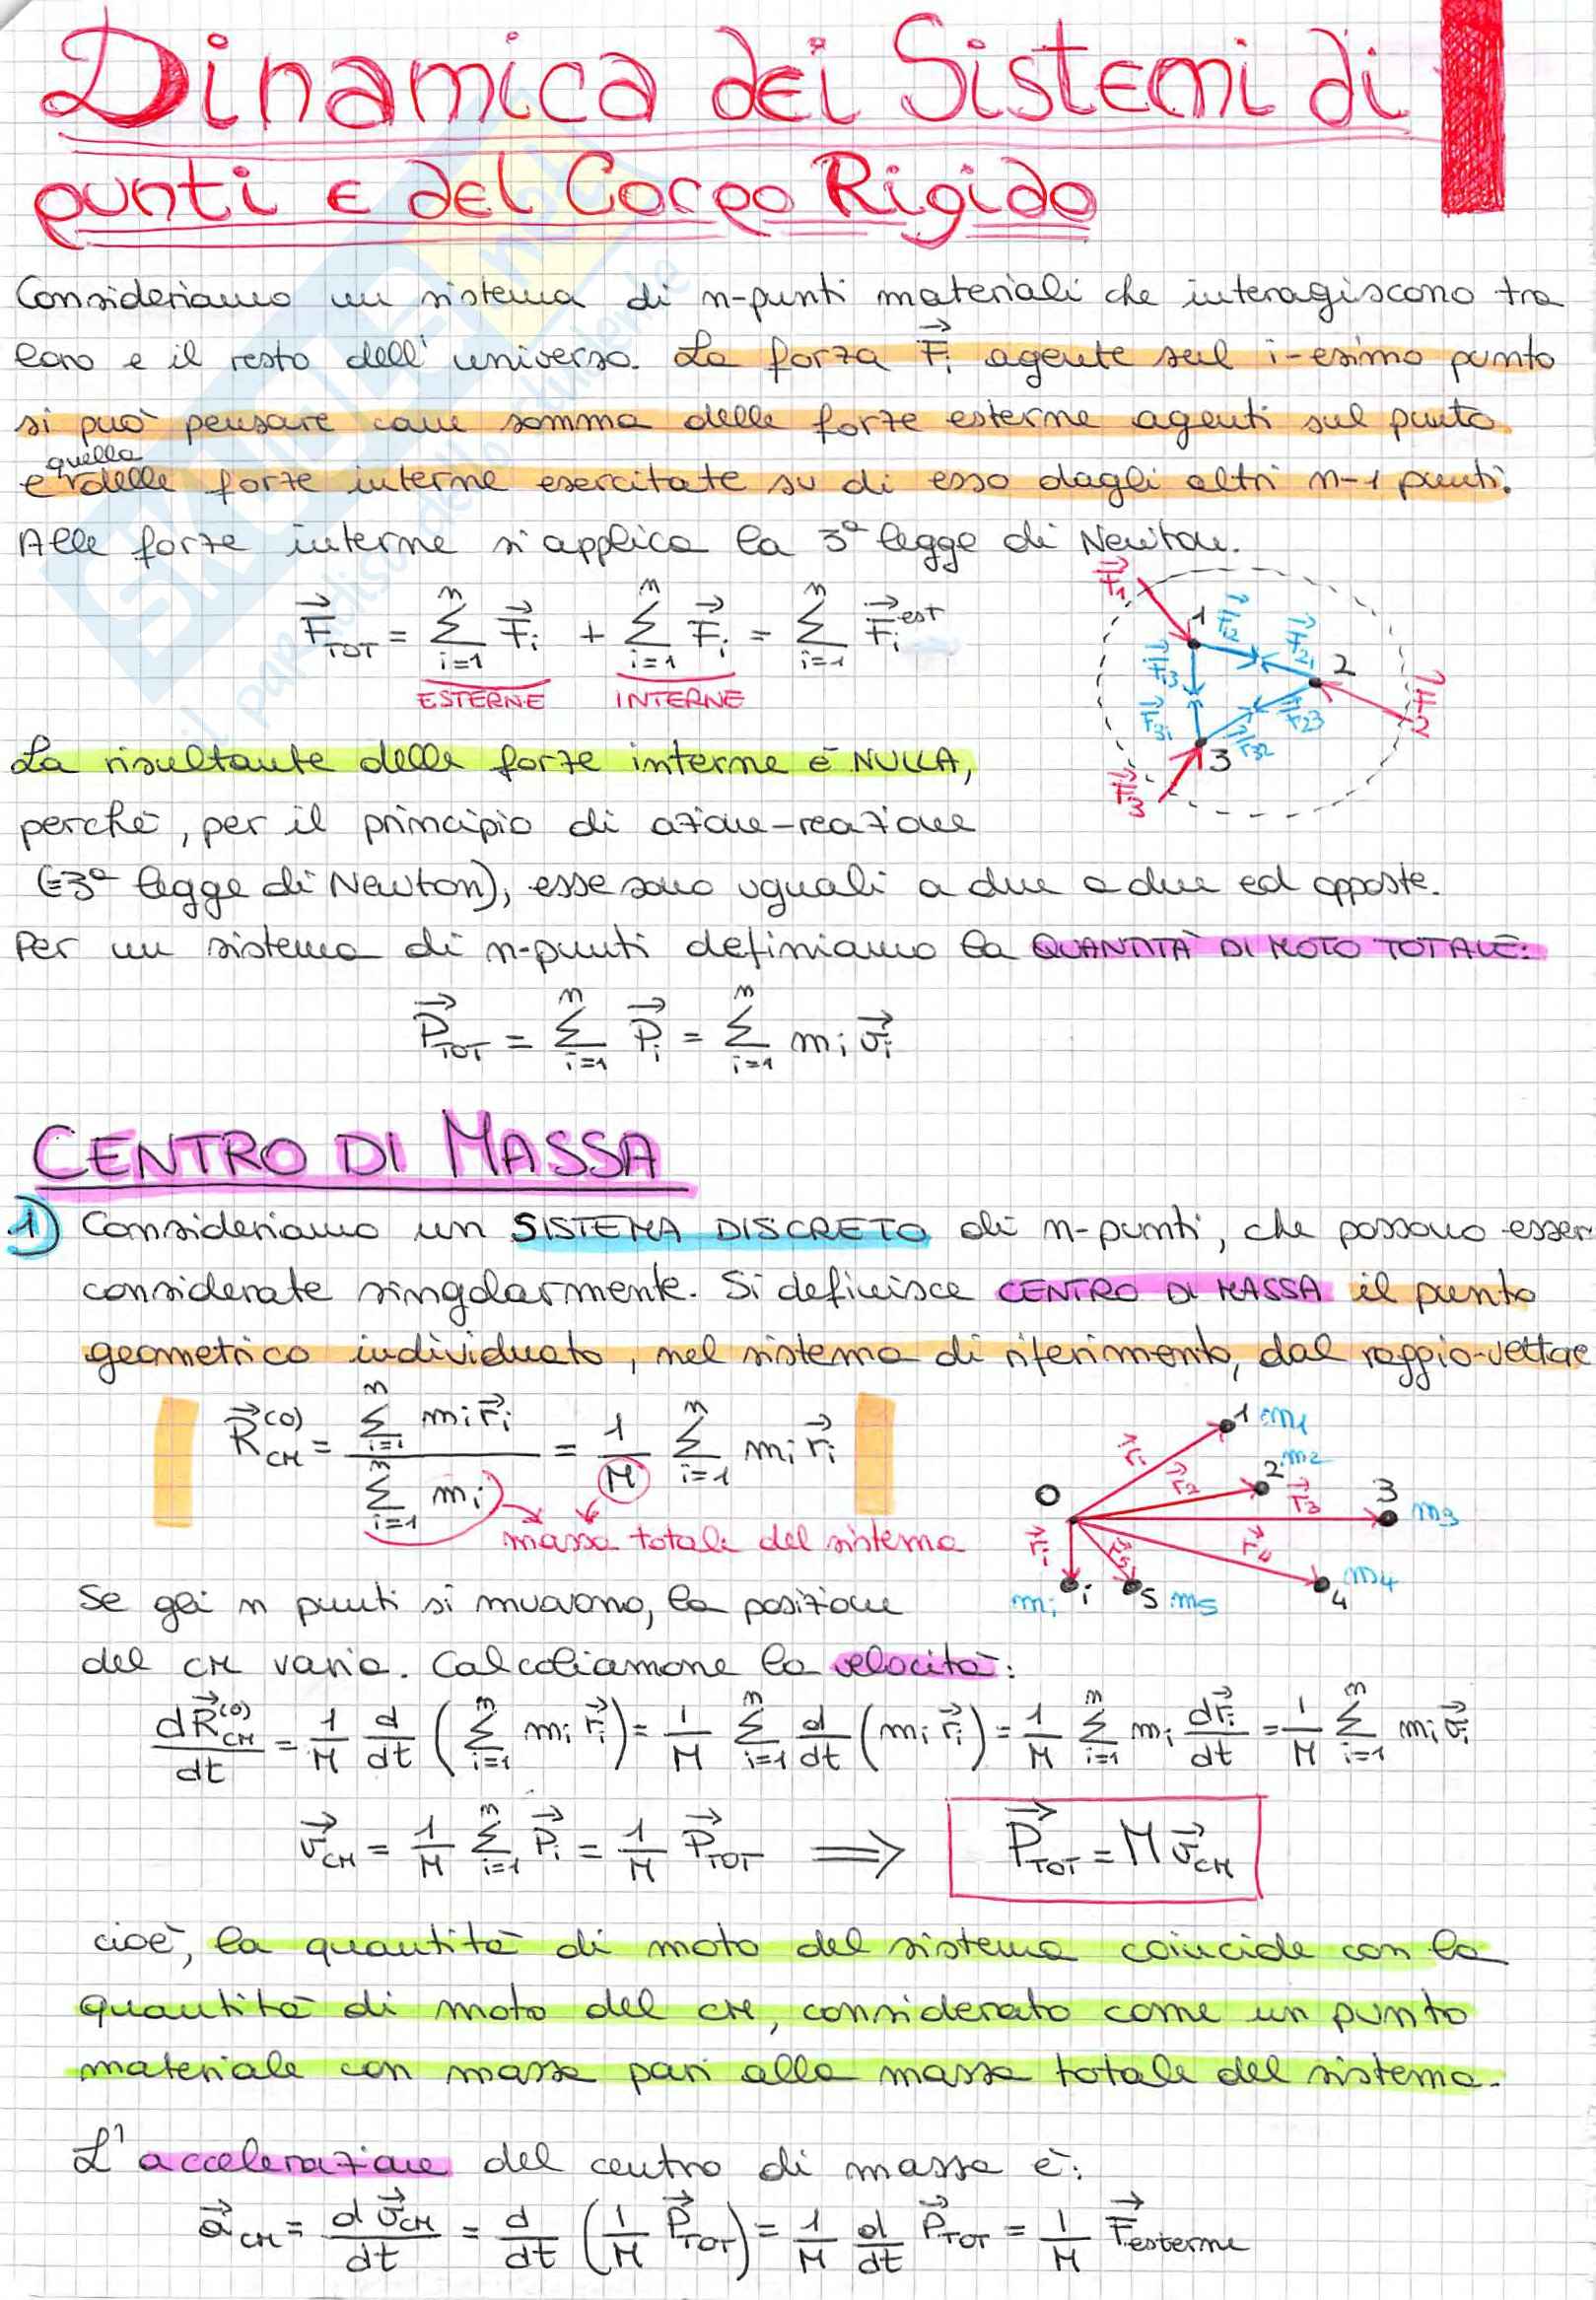 Dinamica dei Sistemi di
punti e del Corpo Rigido
Consideriamo un sistema di n-punti materiali che interagiscono tra
loro e il resto dell'universo. La forza F⃗i agente sul i-esimo punto
si può pensare come somma delle forze esterne agenti sul punto
quella
e delle forze interne esercitate su di esso dagli altri n-1 punti.
Alle forze interne si applica la 3ª legge di Newton.
F⃗TOT = Σ(i=1, n) F⃗i + Σ(i=1, n) F⃗i = Σ(i=1, n) F⃗i^est
ESTERNE INTERNE
F⃗1 1 F⃗12 F⃗21 2 F⃗2
F⃗13 F⃗31 F⃗23 F⃗32
F⃗3 3
La risultante delle forze interne è NULLA,
perché, per il principio di azione-reazione
(=3ª legge di Newton), esse sono uguali a due a due ed opposte.
Per un sistema di n-punti definiamo la QUANTITÀ DI MOTO TOTALE:
P⃗TOT = Σ(i=1, n) P⃗i = Σ(i=1, n) mi v⃗i
CENTRO DI MASSA
1) Consideriamo un SISTEMA DISCRETO di n-punti, che possono esser
considerate singolarmente. Si definisce CENTRO DI MASSA il punto
geometrico individuato, nel sistema di riferimento, dal raggio-vettore
R⃗CM^(O) = Σ(i=1, n) mi r⃗i / Σ(i=1, n) mi = 1/M Σ(i=1, n) mi r⃗i
massa totale del sistema
O r⃗1 1 m1
r⃗2 2 m2
r⃗3 3 m3
r⃗4 4 m4
r⃗5 5 m5
r⃗i i mi
Se gli n punti si muovono, la posizione
del CM varia. Calcoliamone la velocità:
dR⃗CM^(O)/dt = 1/M d/dt (Σ(i=1, n) mi r⃗i) = 1/M Σ(i=1, n) d/dt (mi r⃗i) = 1/M Σ(i=1, n) mi dr⃗i/dt = 1/M Σ(i=1, n) mi v⃗i
v⃗CM = 1/M Σ(i=1, n) P⃗i = 1/M P⃗TOT ⟹ P⃗TOT = M v⃗CM
cioè, la quantità di moto del sistema coincide con la
quantità di moto del CM, considerato come un punto
materiale con massa pari alla massa totale del sistema.
L'accelerazione del centro di massa è:
a⃗CM = dv⃗CM/dt = d/dt (1/M P⃗TOT) = 1/M d/dt P⃗TOT = 1/M F⃗esterne